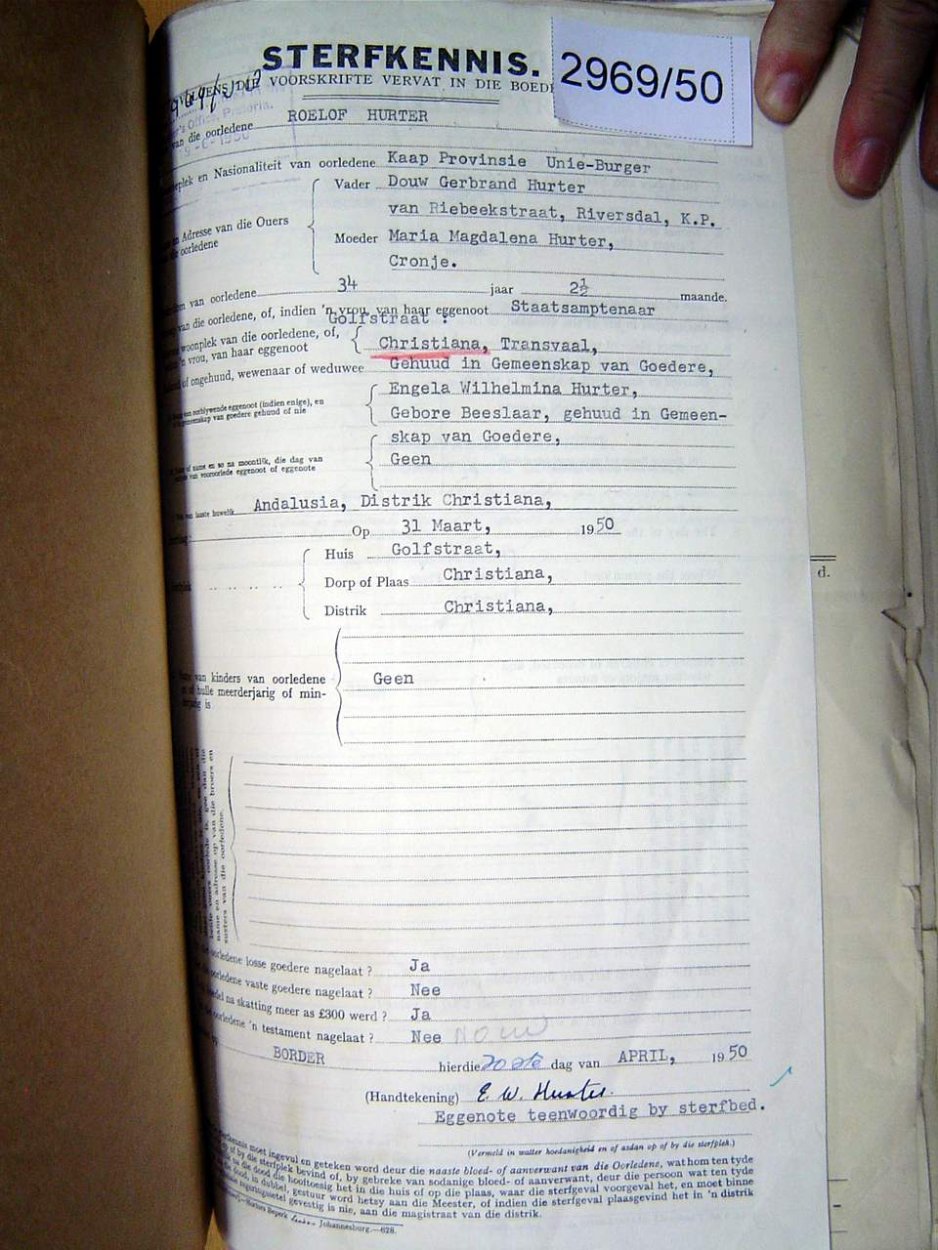 STERFKENNIS.
2969/50
VOORSKRIFTE VERVAT IN DIE BOED
van die oorledene ROELOF HURTER
en Nasionaliteit van oorledene Kaap Provinsie Unie-Burger
Vader Douw Gerbrand Hurter
van Riebeekstraat, Riversdal, K.P.
Adresse van die Ouers
oorledene
Moeder Maria Magdalena Hurter,
Cronje.
van oorledene 34 jaar 2½ maande.
van die oorledene, of, indien 'n vrou, van haar eggenoot Staatsamptenaar
Golfstraat :
woonplek van die oorledene, of,
vrou, van haar eggenoot Christiana, Transvaal,
of ongehuud, wewenaar of weduwee Gehuud in Gemeenskap van Goedere,
Engela Wilhelmina Hurter,
eggenoot (indien enige), en
van goedere gehuud of nie Gebore Beeslaar, gehuud in Gemeen-
skap van Goedere,
name en so na moontlik, die dag van Geen
van vooroorlede eggenoot of eggenote
laaste huwelik Andalusia, Distrik Christiana,
Op 31 Maart, 1950
Huis Golfstraat,
Dorp of Plaas Christiana,
Distrik Christiana,
d.
van kinders van oorledene Geen
hulle meerderjarig of min-
is
name en adresse op van die broers en
susters van die oorledene.
oorledene losse goedere nagelaat ? Ja
oorledene vaste goedere nagelaat ? Nee
na skatting meer as £300 werd ? Ja
oorledene 'n testament nagelaat ? Nee
BORDER hierdie 20ste dag van APRIL, 1950
(Handtekening) E. W. Hurter.
Eggenote teenwoordig by sterfbed.
(Vermeld in watter hoedanigheid en of asdan op of by die sterfplek.)
moet ingevul en geteken word deur die naaste bloed- of aanverwant van die Oorledene, wat hom ten tyde
of by die sterfplek bevind of, by gebreke van sodanige bloed- of aanverwant, deur die persoon wat ten tyde
die dood die hooftoesig het in die huis of op die plaas, waar die sterfgeval voorgeval het, en moet binne
in dubbel, gestuur word hetsy aan die Meester, of indien die sterfgeval plaasgevind het in 'n distrik
gevestig is nie, aan die magistraat van die distrik.
Beperk Johannesburg.—628.